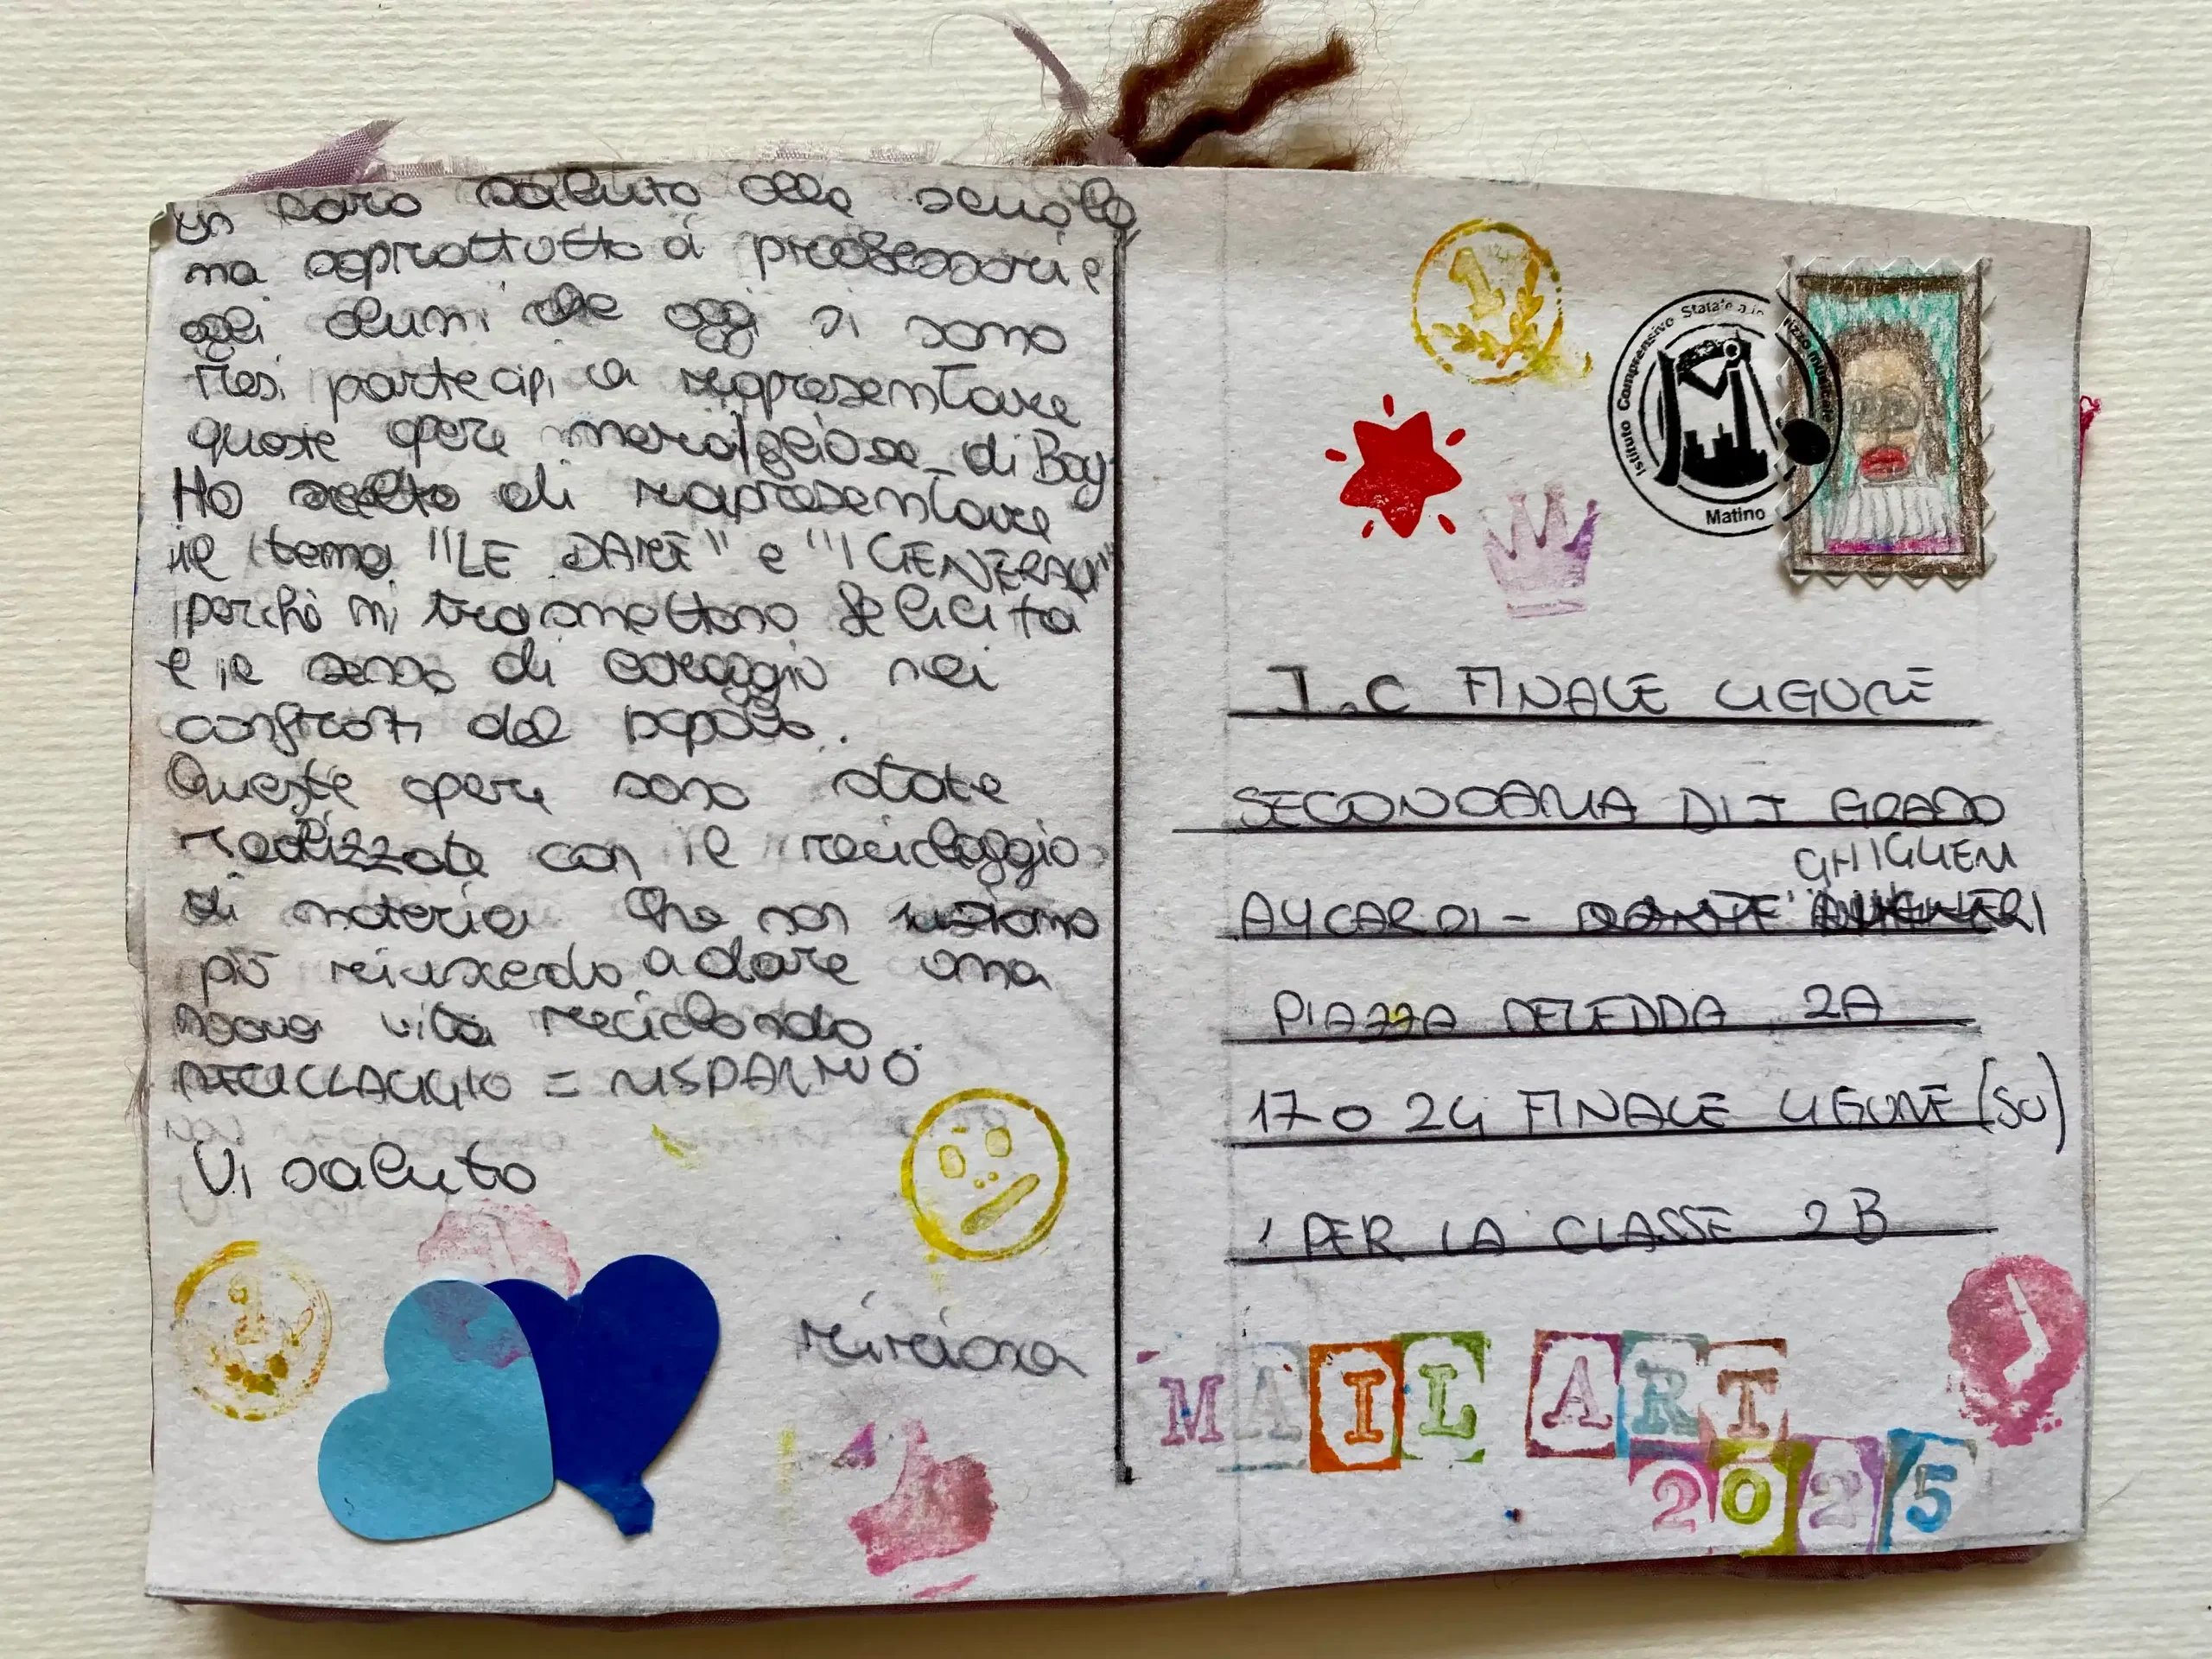 un caro saluto alla scuola
ma soprattutto ai professori e
agli alunni che oggi si sono
resi partecipi a rappresentare
queste opere di Bay
Ho scelto di rapresentare
il tema "LE DAME" e "I GENERALI"
perchè mi trasmettono felicità
e il senso di coraggio nei
confronti del popolo.
Queste opere sono state
realizzate con il riciclaggio
di materia che non
più a dare una
nuova vita riciclando
RICICLAGGIO = RISPARMIO
Vi saluto
Istituto Comprensivo Statale a indirizzo musicale
Matino
I.C FINALE LIGURE
SECONDARIA DI I GRADO
GHIGLIERI
AYCARDI - DANTE ALIGHIERI
PIAZZA DELEDDA 2A
17024 FINALE LIGURE (SV)
PER LA CLASSE 2B
MAIL ART
2025